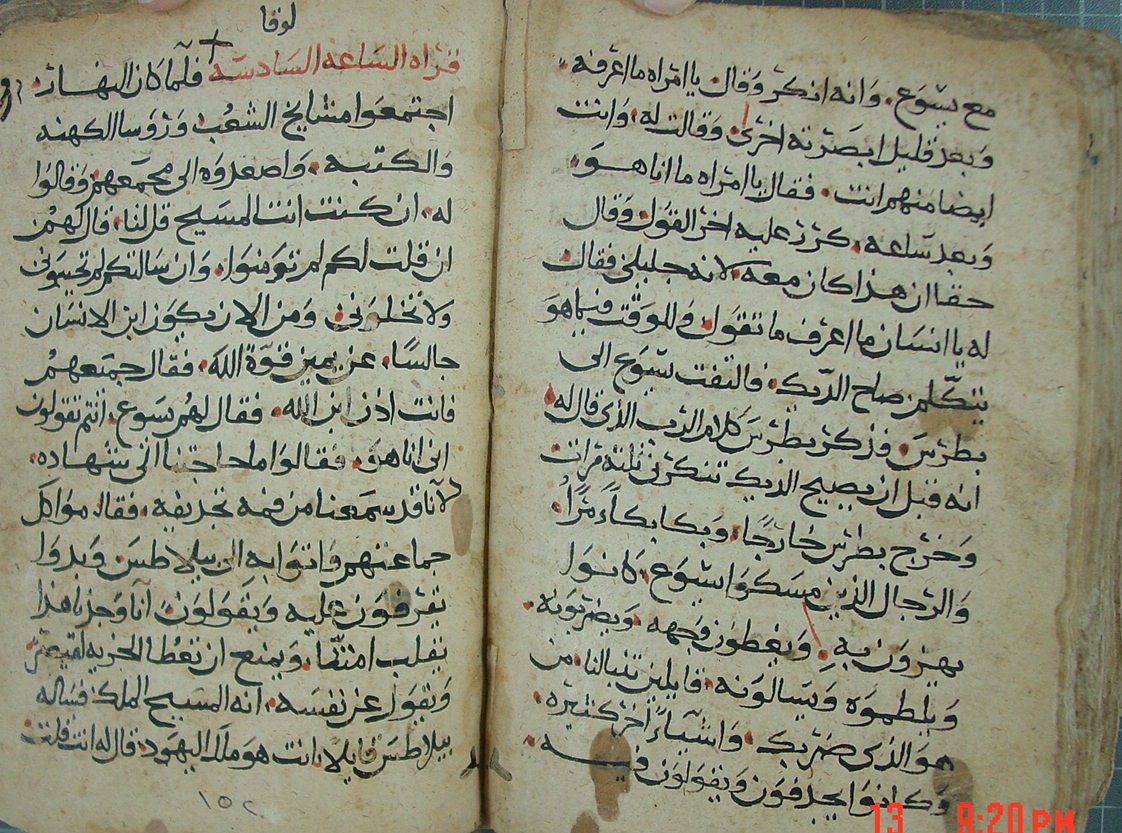 مع يسوع. وانه انكر وقال يا امراه ما اعرفه.
وبعد قليل ابصرته اخرى وقالت له. وانت
ايضا منهم انت. فقال يا امراه ما انا هو.
وبعد ساعه. كرر عليه اخر القول وقال
حقا ان هذا كان معه. لانه جليلي فقال
له يا انسان ما اعرف ما تقول وللوقت فيما هو
يتكلم صاح الديك. فالتفت يسوع الى
بطرس. فذكر بطرس كلام الرب الذى قال له.
انه قبل ان يصيح الديك تنكرنى تلته مرات
وخرج بطرس خارجا. وبكا بكاء مرا.
والرجال الذين مسكوا يسوع. كانوا
يهزون به. ويغطون وجهه. ويضربونه.
ويلطموه ويسالونه. قايلين تنبالنا. من
هو الذى ضربك. واشياء اخر كتيره.
وكانوا يجدفون ويقولون فيه.
لوقا
قراه الساعه السادسه فلما كان النهار.
اجتمعوا مشايخ الشعب وروسا الكهنه
والكتبه. واصعدوه الى مجمعهم وقالوا
له. ان كنت انت المسيح قل لنا. قال لهم
ان قلت لكم لم تومنوا. وان سالتكم لم تجيبونى
ولا تخلونى. ومن الان يكون ابن الانسان
جالسا. عن يمين قوة الله. فقال جميعهم
فانت اذن ابن الله. فقال لهم يسوع. انتم تقولون
انى انا هو. فقالوا ما حاجتنا الى شهاده.
لانا قد سمعنا من فمه تجديفه. فقاموا كل
جماعتهم واتوا به الى بيلاطس وبدوا
يقرفون عليه ويقولون. انا وجدنا هذا
يقلب امتنا. ويمنع ان تعطا الجزيه لقيصر
ويقول عن نفسه. انه المسيح الملك فساله
بيلاطس قايلا. انت هو ملك اليهود. قال له انت قلت
١٥٢
13 9:20 PM